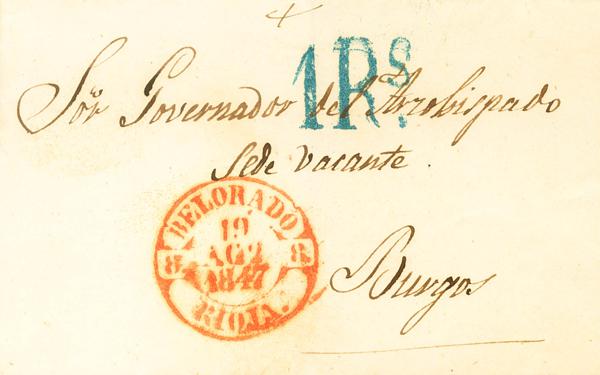 1Rs.
Sör Governador del Arzobispado
Sede Vacante.
BELORADO
19
AGO
8 1847 8
RIOJA.
Burgos